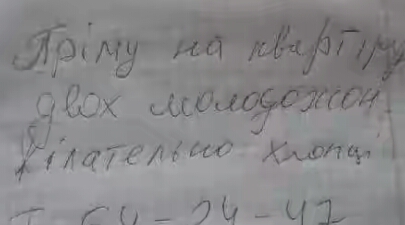 Пріму на квартіру
двох молодожон
жілательно хлопці
Т 54-24-47